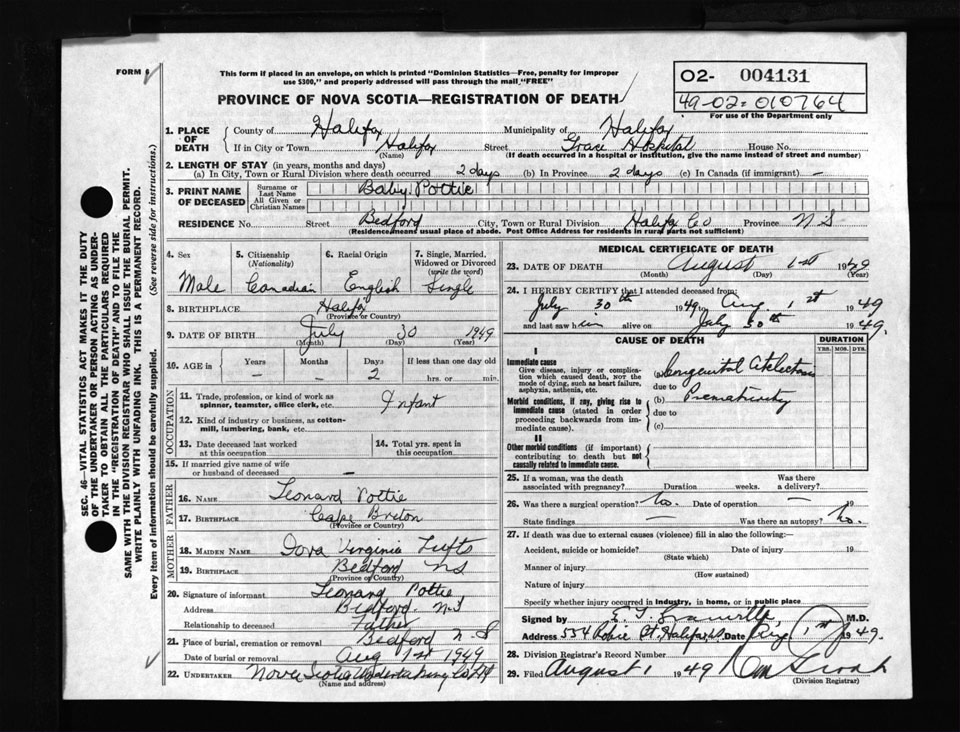 FORM 6
This form if placed in an envelope, on which is printed "Dominion Statistics—Free, penalty for improper
use $300," and properly addressed will pass through the mail "FREE"
O2- 004131
49-02-010764
For use of the Department only
PROVINCE OF NOVA SCOTIA—REGISTRATION OF DEATH
1. PLACE OF DEATH County of Halifax Municipality of Halifax
If in City or Town Halifax Street Grace Hospital House No.
(Name) (If death occurred in a hospital or institution, give the name instead of street and number)
2. LENGTH OF STAY (in years, months and days)
(a) In City, Town or Rural Division where death occurred 2 days (b) In Province 2 days (c) In Canada (if immigrant) —
3. PRINT NAME OF DECEASED Surname or Last Name Baby Pottie
All Given or Christian Names
RESIDENCE No. Street Bedford City, Town or Rural Division Halifax Co Province N S
(Residence means usual place of abode. Post Office Address for residents in rural parts not sufficient)
SEC. 46—VITAL STATISTICS ACT MAKES IT THE DUTY
OF THE UNDERTAKER OR PERSON ACTING AS UNDER-
TAKER TO OBTAIN ALL THE PARTICULARS REQUIRED
IN THE "REGISTRATION OF DEATH" AND TO FILE THE
SAME WITH THE DIVISION REGISTRAR WHO SHALL ISSUE THE BURIAL PERMIT.
WRITE PLAINLY WITH UNFADING INK. THIS IS A PERMANENT RECORD.
Every item of information should be carefully supplied. (See reverse side for instructions.)
4. Sex 5. Citizenship (Nationality) 6. Racial Origin 7. Single, Married, Widowed or Divorced (write the word)
Male Canadian English Single
8. BIRTHPLACE Halifax
(Province or Country)
9. DATE OF BIRTH July 30 1949
(Month) (Day) (Year)
10. AGE in Years Months Days If less than one day old
— — 2 hrs. or min.
OCCUPATION
11. Trade, profession, or kind of work as
spinner, teamster, office clerk, etc. Infant
12. Kind of industry or business, as cotton-
mill, lumbering, bank, etc.
13. Date deceased last worked at this occupation 14. Total yrs. spent in this occupation
15. If married give name of wife
or husband of deceased —
FATHER
16. NAME Leonard Pottie
17. BIRTHPLACE Cape Breton
(Province or Country)
MOTHER
18. MAIDEN NAME Iova Virginia Tufts
19. BIRTHPLACE Bedford NS
(Province or Country)
20. Signature of informant Leonard Pottie
Address Bedford. N.S
Relationship to deceased Father
21. Place of burial, cremation or removal Bedford N-S
Date of burial or removal Aug 1st 1949
22. UNDERTAKER Nova Scotia Undertaking Co Ltd
(Name and address)
MEDICAL CERTIFICATE OF DEATH
23. DATE OF DEATH August 1st 1949
(Month) (Day) (Year)
24. I HEREBY CERTIFY that I attended deceased from:
July 30th 1949, Aug. 1st 1949
and last saw him alive on July 30th 1949.
CAUSE OF DEATH DURATION
YRS. MOS. DYS.
I
Immediate cause
Give disease, injury or complica-
tion which caused death, NOT the
mode of dying, such as heart failure,
asphyxia, asthenia, etc.
(a) Congenital Atelectasis
due to
Morbid conditions, if any, giving rise to
immediate cause (stated in order
proceeding backwards from im-
mediate cause).
(b) Prematurity
due to
(c)
II
Other morbid conditions (if important)
contributing to death but not
causally related to immediate cause.
25. If a woman, was the death associated with pregnancy? Duration weeks. Was there a delivery?
26. Was there a surgical operation? No. Date of operation — 19
State findings — Was there an autopsy? No.
27. If death was due to external causes (violence) fill in also the following:
Accident, suicide or homicide? Date of injury 19
(State which)
Manner of injury
(How sustained)
Nature of injury
Specify whether injury occurred in industry, in home, or in public place
Signed by M.D.
Address 554 Robie St. Halifax Date Aug 1st 1949.
28. Division Registrar's Record Number
29. Filed August 1 1949
(Division Registrar)